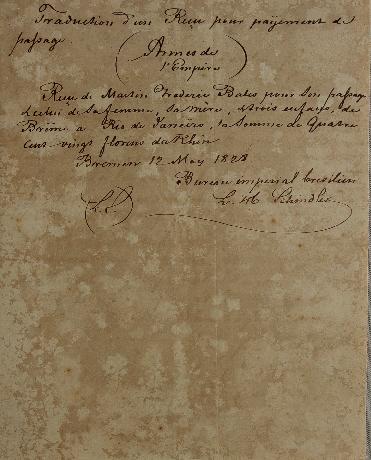 Traduction d'un Reçu pour payement de
passage.
Armes de
l'Empire
Reçu de Martin Frederic Bates pour son passage
& celui de sa femme, sa mère, & trois enfants, de
Brême a Rio de Janeiro, la somme de Quatre
cent-vingt florins du Rhin
Bremen 12 May 1828
Bureau imperial bresilien
L. S.
Schindler